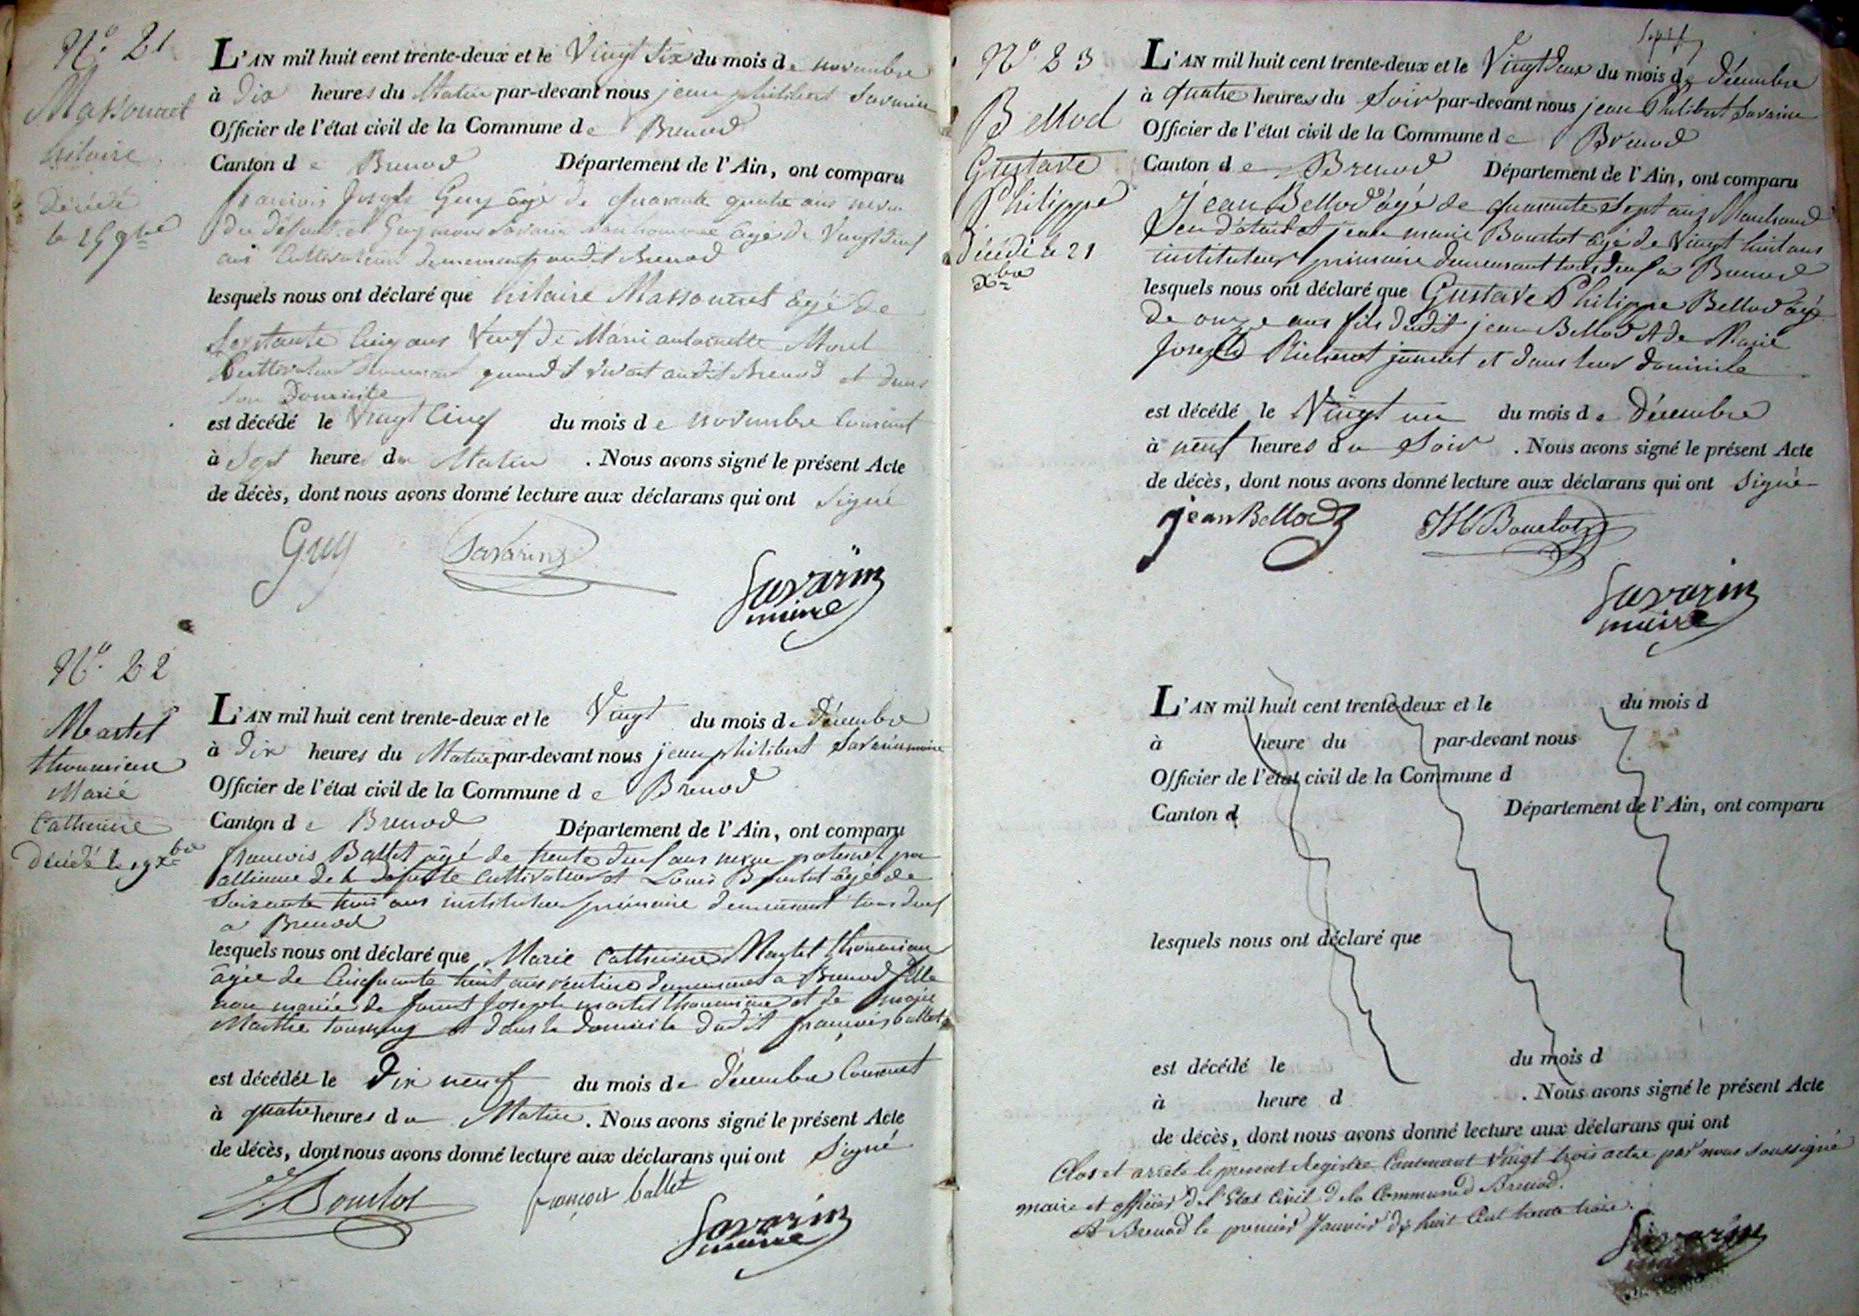 N.o 21
Massonnet
hilaire
Décédé
le 25 9bre
L'AN mil huit cent trente-deux et le Vingt Six du mois de novembre
à Dix heures du Matin par-devant nous jean philibert Savarin
Officier de l'état civil de la Commune de Brenod
Canton de Brenod Département de l'Ain, ont comparu
francois Joseph Guy âgé de quarante quatre ans neveu
du défunt et Savarin âgé de Vingt neuf
ans Cultivateurs demeurants audit Brenod
lesquels nous ont déclaré que hilaire Massonnet âgé de
Septante Cinq ans Veuf de Marie antoinette Morel
Cultivateur demeurant quand il vivait audit Brenod et dans
son Domicile
est décédé le Vingt Cinq du mois de novembre Courant
à Sept heures du Matin . Nous avons signé le présent Acte
de décès, dont nous avons donné lecture aux déclarans qui ont Signé
Guy Savarin
Savarin
maire
N.o 22
Martel
thounieue
Marie
Catherine
Décédé le 19 Xbre
L'AN mil huit cent trente-deux et le Vingt du mois de Décembre
à Dix heures du Matin par-devant nous jean philibert Savarin maire
Officier de l'état civil de la Commune de Brenod
Canton de Brenod Département de l'Ain, ont comparu
francois Ballet âgé de trente deux ans neveu paternel par
alliance de la défunte Cultivateur et Louis Bourlot âgé de
Soixante trois ans instituteur primaire demeurant tous deux
a Brenod
lesquels nous ont déclaré que Marie Catherine Martel
âgée de Cinquante huit ans demeurant a Brenod fille
non mariée de Joseph martel et de marie
Marthe et dans le domicile dudit francois ballet
est décédée le Dix neuf du mois de décembre Courant
à quatre heures du Matin . Nous avons signé le présent Acte
de décès, dont nous avons donné lecture aux déclarans qui ont Signé
L. Bourlot françois ballet
Savarin
maire
N.o 23
Bellod
Gustave
Philippe
décédé le 21
Xbre
L'AN mil huit cent trente-deux et le Vingt deux du mois de décembre
à quatre heures du Soir par-devant nous jean Philibert Savarin
Officier de l'état civil de la Commune de Brenod
Canton de Brenod Département de l'Ain, ont comparu
Jean Bellod âgé de quarante Sept ans Marchand
et jean marie Bourlot âgé de Vingt huit ans
instituteur primaire demeurant tous deux a Brenod
lesquels nous ont déclaré que Gustave Philippe Bellod âgé
de onze ans fils dudit jean Bellod et de Marie
Joseph Richerot jannet et dans leur domicile
est décédé le Vingt un du mois de décembre
à neuf heures du Soir . Nous avons signé le présent Acte
de décès, dont nous avons donné lecture aux déclarans qui ont Signé
jean Bellod JM Bourlot
Savarin
maire
L'AN mil huit cent trente-deux et le du mois d
à heure du par-devant nous
Officier de l'état civil de la Commune d
Canton d Département de l'Ain, ont comparu
lesquels nous ont déclaré que
est décédé le du mois d
à heure d . Nous avons signé le présent Acte
de décès, dont nous avons donné lecture aux déclarans qui ont
Clos et arrêté le présent Registre Contenant Vingt trois actes par nous soussigné
maire et officier de l'Etat Civil de la Commune d Brenod.
A Brenod le premier Janvier dix huit Cent trente trois.
Savarin
maire